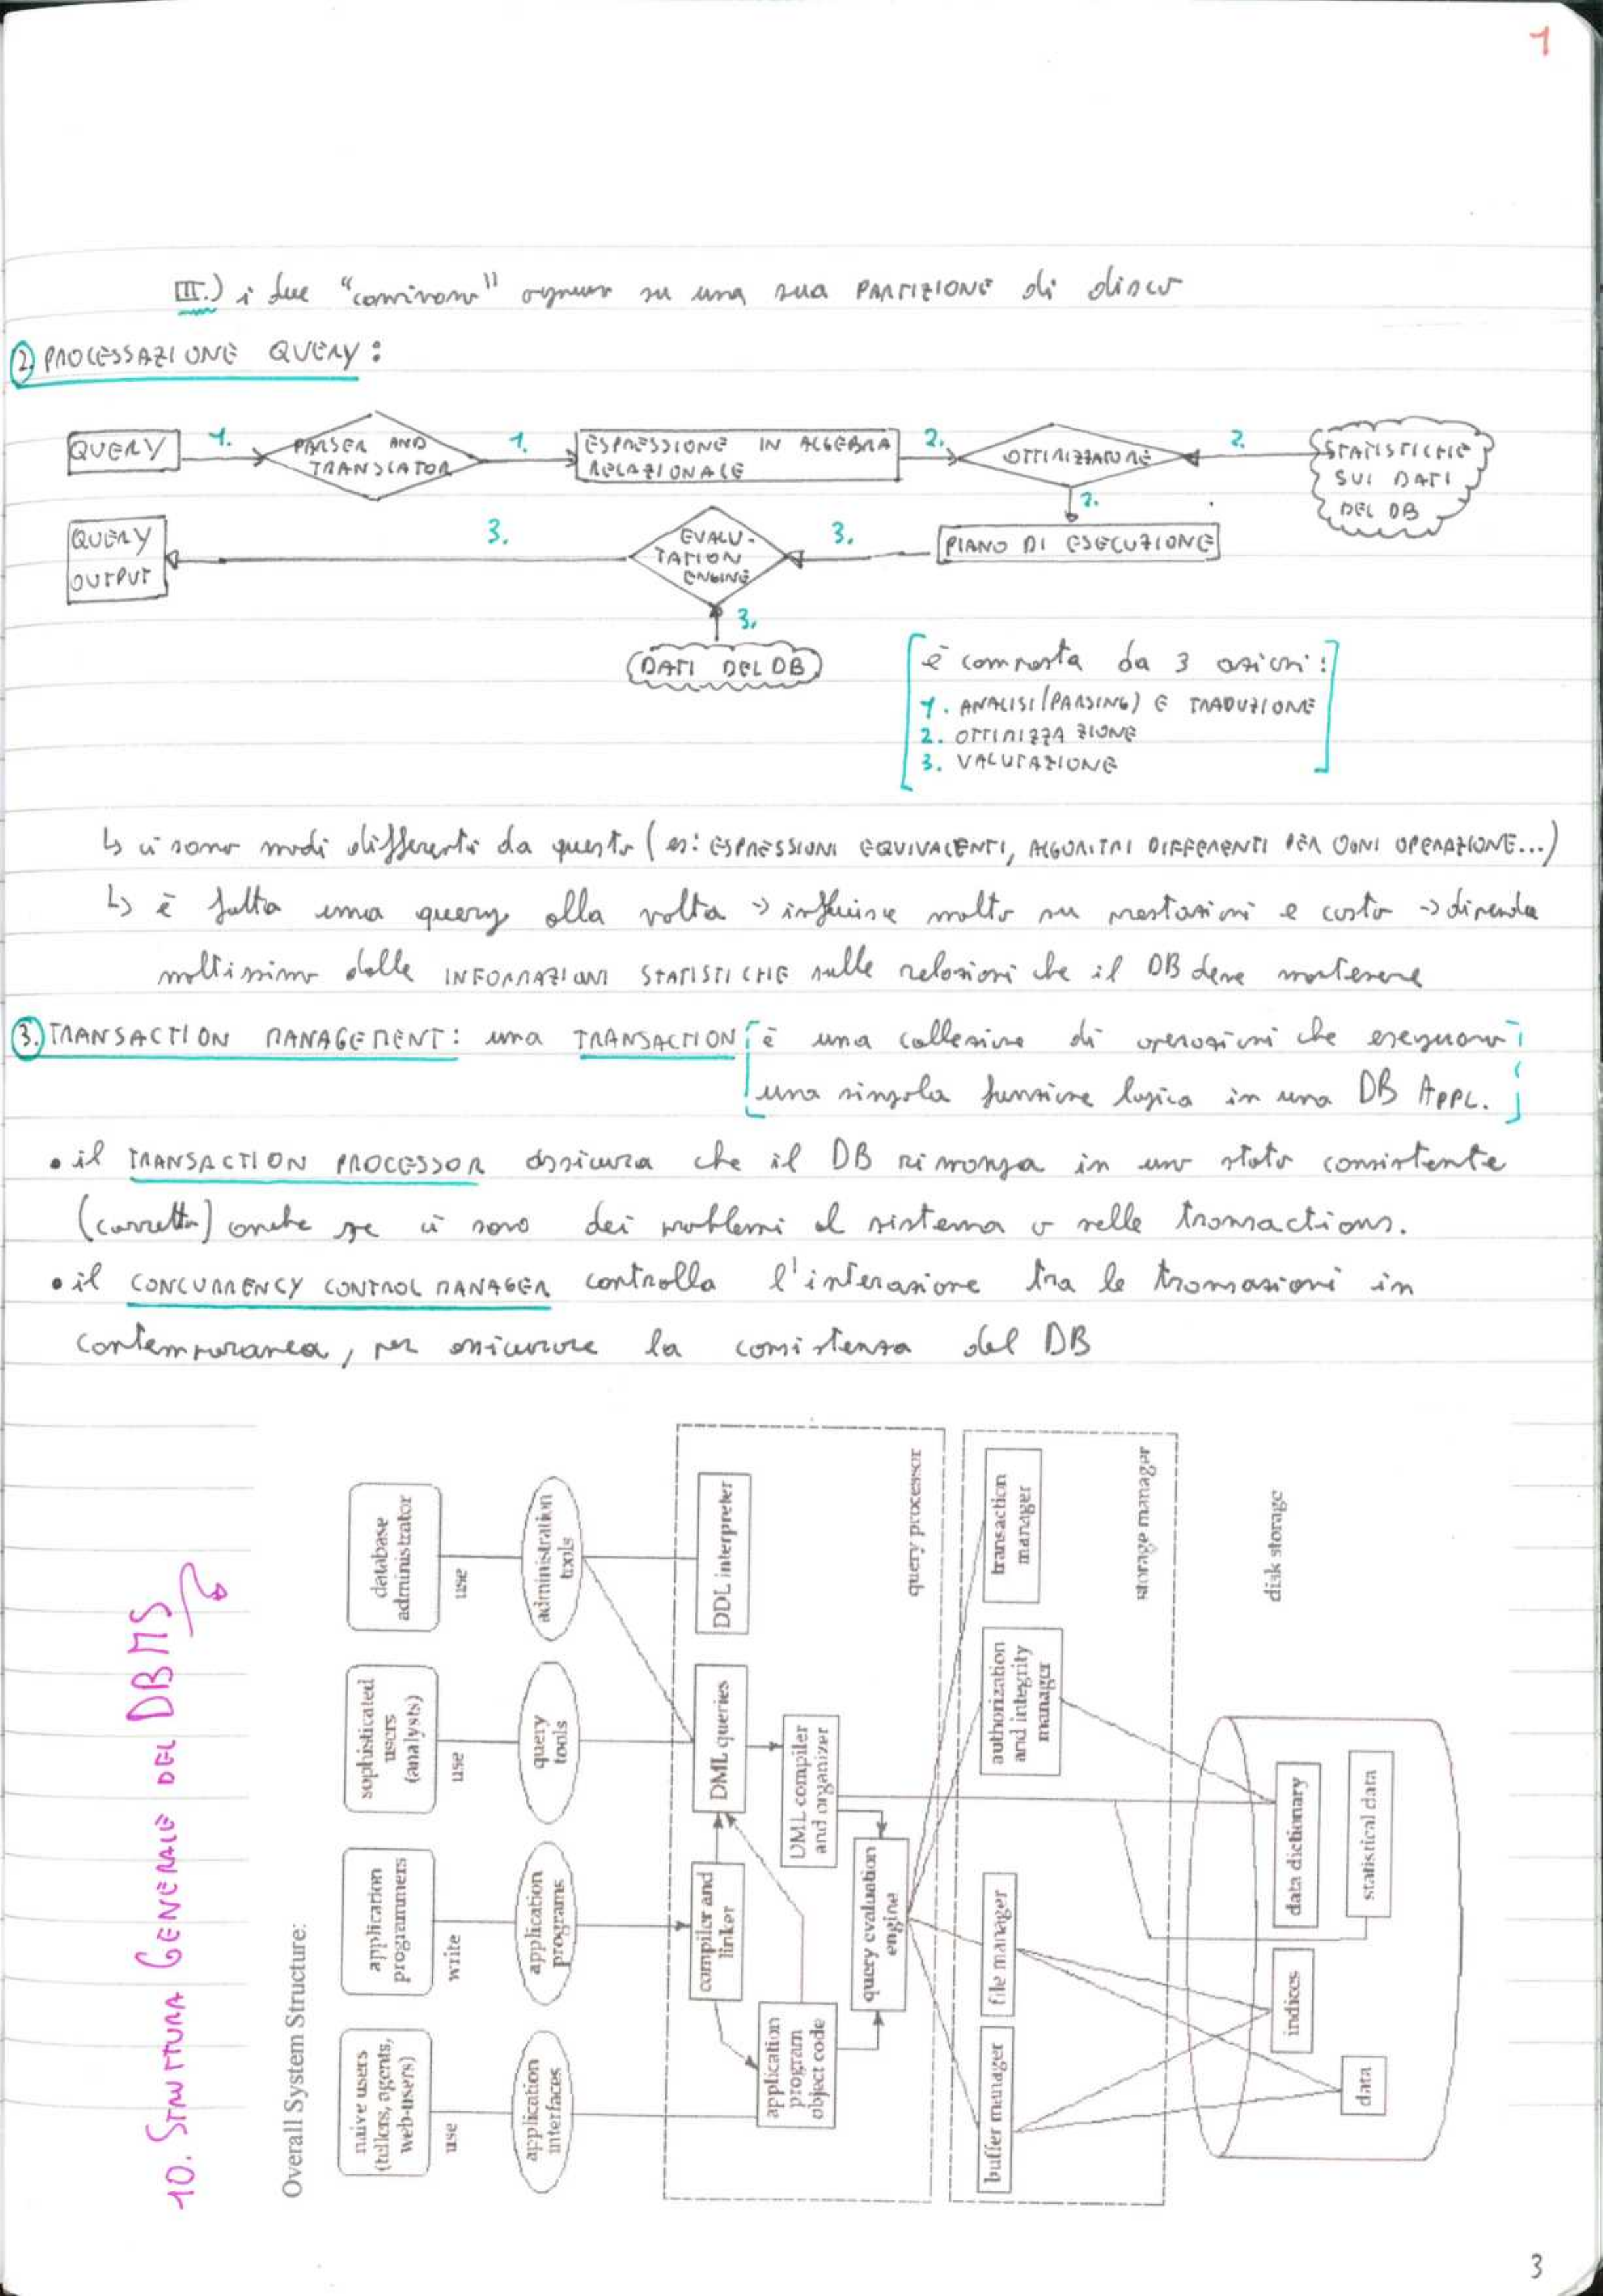 1
III.) i due "convivono" ognuno su una sua PARTIZIONE di disco
2. PROCESSAZIONE QUERY:
QUERY
1.
PARSER AND
TRANSLATOR
1.
ESPRESSIONE IN ALGEBRA
RELAZIONALE
2.
OTTIMIZZATORE
2.
STATISTICHE
SUI DATI
DEL DB
2.
PIANO DI ESECUZIONE
3.
EVALU-
TATION
ENGINE
3.
QUERY
OUTPUT
3.
DATI DEL DB
è composta da 3 azioni:
1. ANALISI (PARSING) E TRADUZIONE
2. OTTIMIZZAZIONE
3. VALUTAZIONE
↳ ci sono modi differenti da questo (es: ESPRESSIONI EQUIVALENTI, ALGORITMI DIFFERENTI PER OGNI OPERAZIONE...)
↳ è fatta una query alla volta → influisce molto su prestazioni e costo → dipende
moltissimo dalle INFORMAZIONI STATISTICHE sulle relazioni che il DB deve mantenere
3. TRANSACTION MANAGEMENT: una TRANSACTION [è una collezione di operazioni che eseguono
una singola funzione logica in una DB APPL.]
• il TRANSACTION PROCESSOR assicura che il DB rimanga in uno stato consistente
(corretto) anche se ci sono dei problemi al sistema o nelle transactions.
• il CONCURRENCY CONTROL MANAGER controlla l'interazione tra le transazioni in
contemporanea, per assicurare la consistenza del DB
10. STRUTTURA GENERALE DEL DBMS
Overall System Structure:
naive users
(tellers, agents,
web-users)
application
programmers
sophisticated
users
(analysts)
database
administrator
use
write
use
use
application
interfaces
application
programs
query
tools
administration
tools
compiler and
linker
DML queries
DDL interpreter
application
program
object code
DML compiler
and organizer
query evaluation
engine
query processor
buffer manager
file manager
authorization
and integrity
manager
transaction
manager
storage manager
disk storage
indices
data dictionary
data
statistical data
3